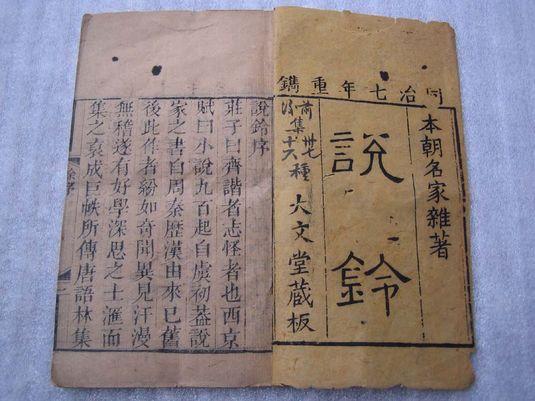 同治七年重鐫
本朝名家雜著
說鈴
前集卅七種
後集十六種
大文堂藏板
說鈴序
莊子曰齊諧者志怪者也西京
賦曰小說九百起自虞初葢說
家之書自周秦歷漢由來已舊
後此作者紛如奇聞異見汗漫
無稽遂有好學深思之士滙而
集之裒成巨帙所傳唐語林集